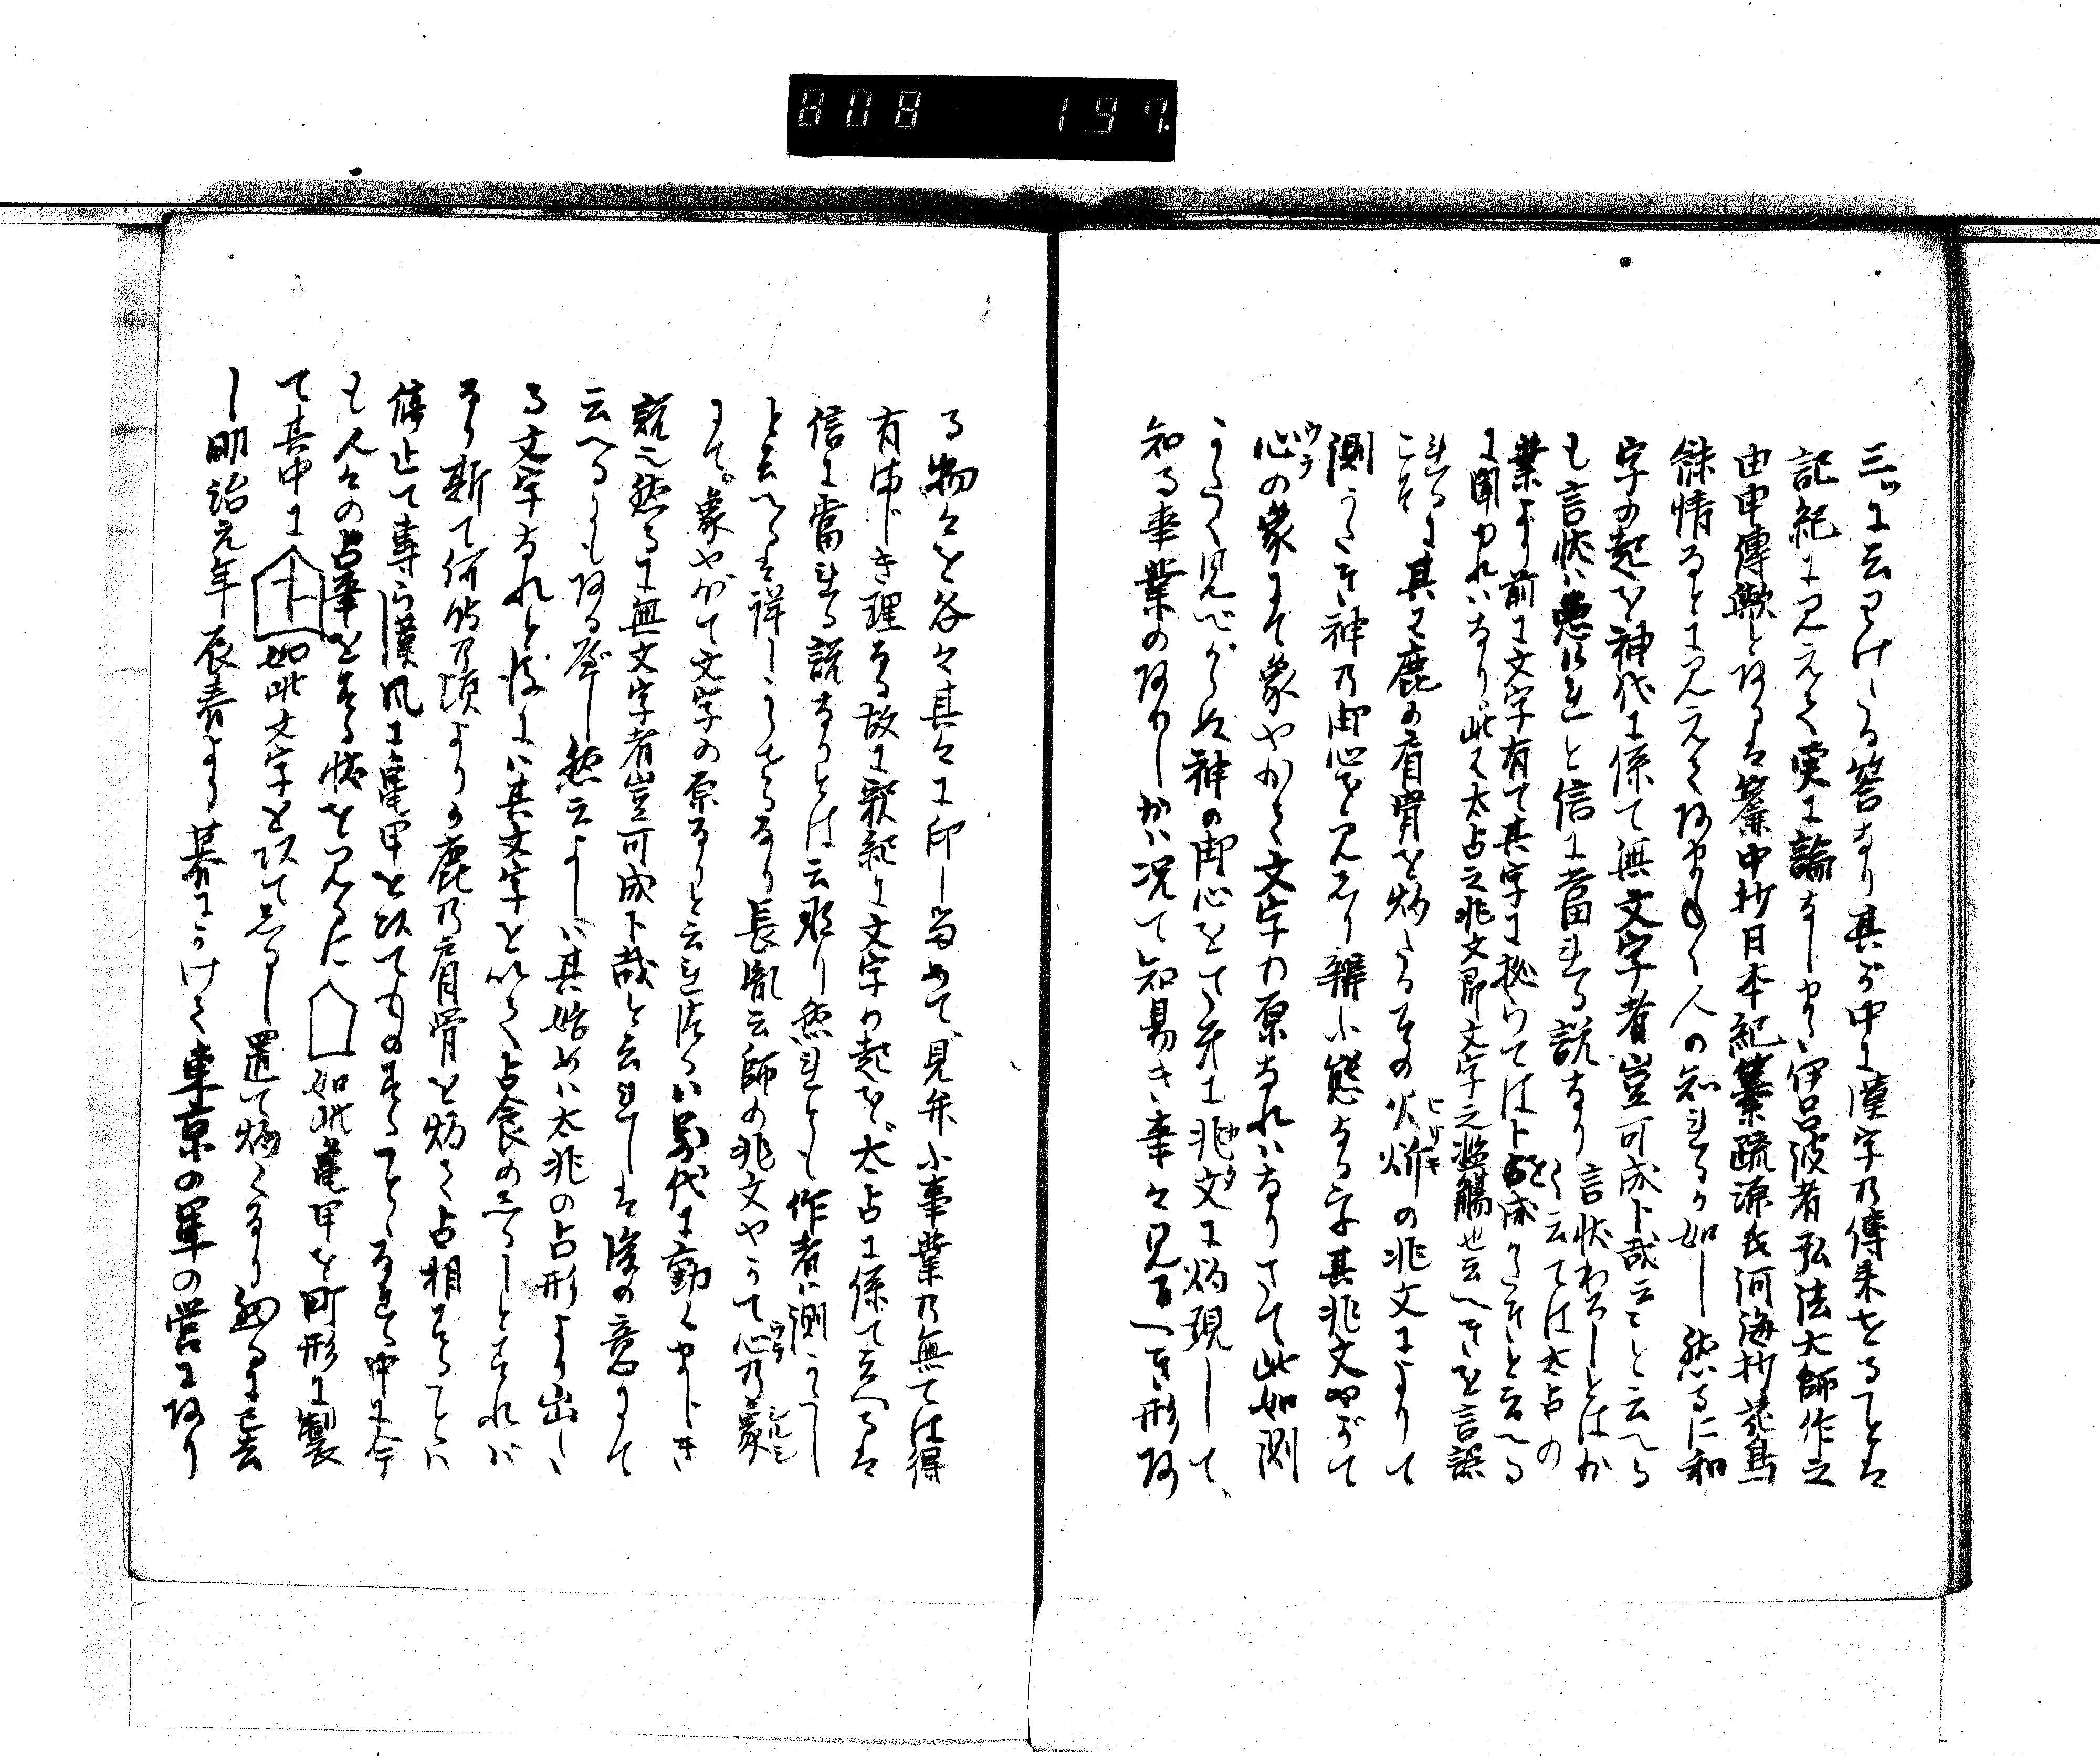 808 197.
三ツに云わけたる答なり其が中に漢字乃傳来せることは
記紀に見えて実に論なしまた伊呂波者弘法大師作之
由申傳歟とあるは簾中抄日本紀纂疏源氏河海抄花鳥
餘情などに見えてあまねく人の知れるが如し然るに和
字の起を神代に係て無文字者豈可成卜哉云々と云へる
も言状は悪けれど信に當れる説なり言状わろしとはか
く云ては太占の
業より前に文字有て其字に拠りては卜を成りきと云へる
に聞ゆればなり此は太占之兆文即文字之濫觴也云へきを言誤
れるに其は鹿の肩骨を灼たるその火坼の兆文によりて
こそ
測かたき神乃御心を見そり辨ふ態なる字其兆文やがて
心の象にて象やがて文字の原なればなりさて此如測
かたく見べからぬ神の御心をさきに兆文に灼現して、
知る事業のありしかば况て知易き事々見百へき形あ
る物々を各々其々に印し留めて見弁ふ事業乃無ては得
有ましき理なる故に釈紀に文字の起を太占に係て云へるは
信に當れる説なりとは云那り然れとも作者は測かたし
と云へるは詳しからざるなり長胤云師の兆文やがて心乃象
にて。象やがて文字の原なりと云れたるは万代に動くましき
説也然るに無文字者豈可成卜哉と云れしは後の意にて
云へるにもあるべし然云よしは其始めは太兆の占形より出た
る文字なれど後には其文字を以て占食のしるしとすれば
なり斯て何時乃頃よりか鹿乃肩骨を灼て占相することは
停止て専ら漢風に亀甲を以てものすることゝなれる中に今
も人々の占事をする状を見るに 如此亀甲を町形に製
て其中に 如此文字を以てしるし置て灼くなり廼るに已去
し明治元年辰春より暮にかけて東京の軍の営にあり